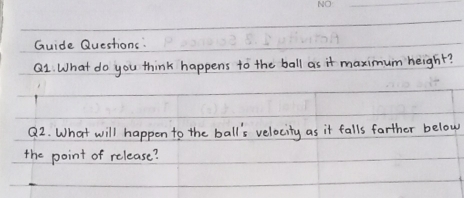 NO:
Guide Questions:
Q1. What do you think happens to the ball as it maximum height?
Q2. What will happen to the ball's velocity as it falls farther below
the point of release?